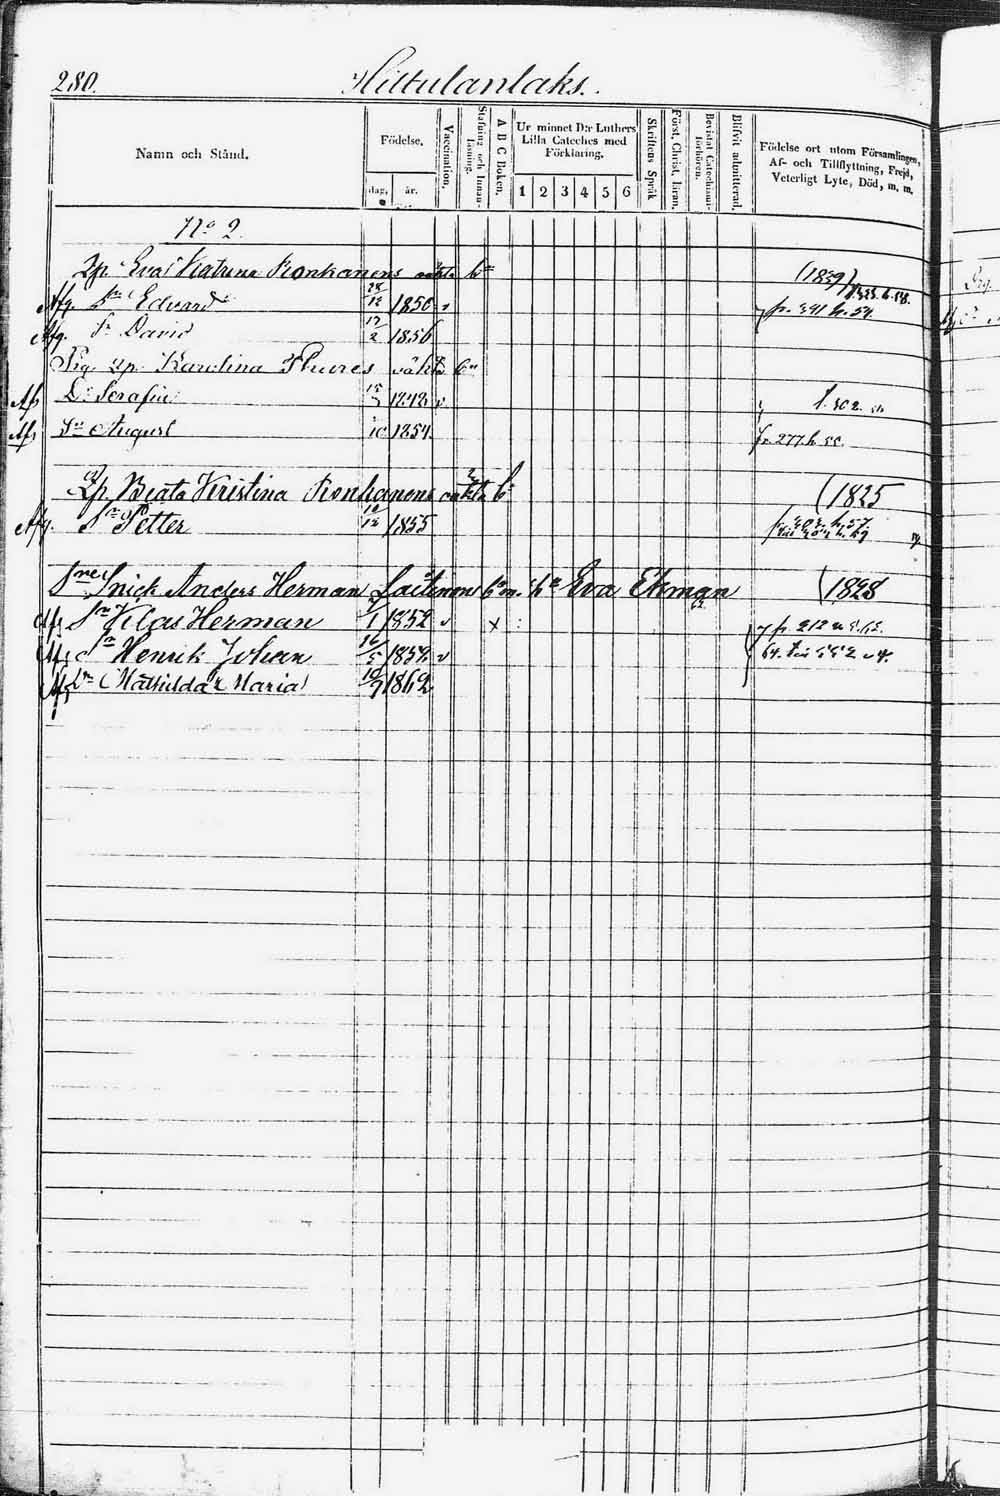 280.
Hittulanlaks.
Namn och Stånd.
Födelse.
dag, år.
Vaccination.
Stafning och Innanläsning.
A B C Boken.
Ur minnet D:r Luthers Lilla Cateches med Förklaring.
1 2 3 4 5 6
Skriftens Språk
Först. Christ. läran.
Bevistat Catechismiförhören.
Blifvit admitterad.
Födelse ort utom Församlingen, Af- och Tillflyttning, Frejd, Veterligt Lyte, Död, m. m.
No 2.
Eva Katrina Ronkanens oäkta bn (1839)
Afg. Sn Edvard 28/12 1850 v fr. 391 h. 54.
Afg. Sn David 17/2 1856
Pig. Karolina Thures oäkta bn
Afg Dr Serafin 1848 v f. 302
Afg Sn August 10 1854. fr. 277 h.
Beata Kristina Ronkanens oäkta bn (1825
Afg. Sn Petter 12 1855
Snick Anders Herman Laitinens bn m. hu Eva Ekman (1828
Afg Sn Klas Herman 1 1852 v x fr. 212
Afg Sn Henrik Johan 16/5 1854 v 64.
Afg Dr Mathilda Maria 10/9 1862